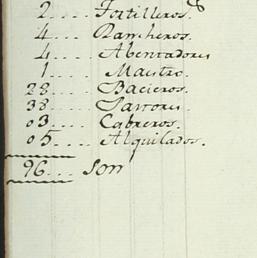 2.... Tortilleros.
4.... Rancheros.
4.... Abentadores
1.... Maestro.
28.... Bacieros.
38.... Pastores.
03.... Cabreros.
05.... Alquilados.
96.... Son